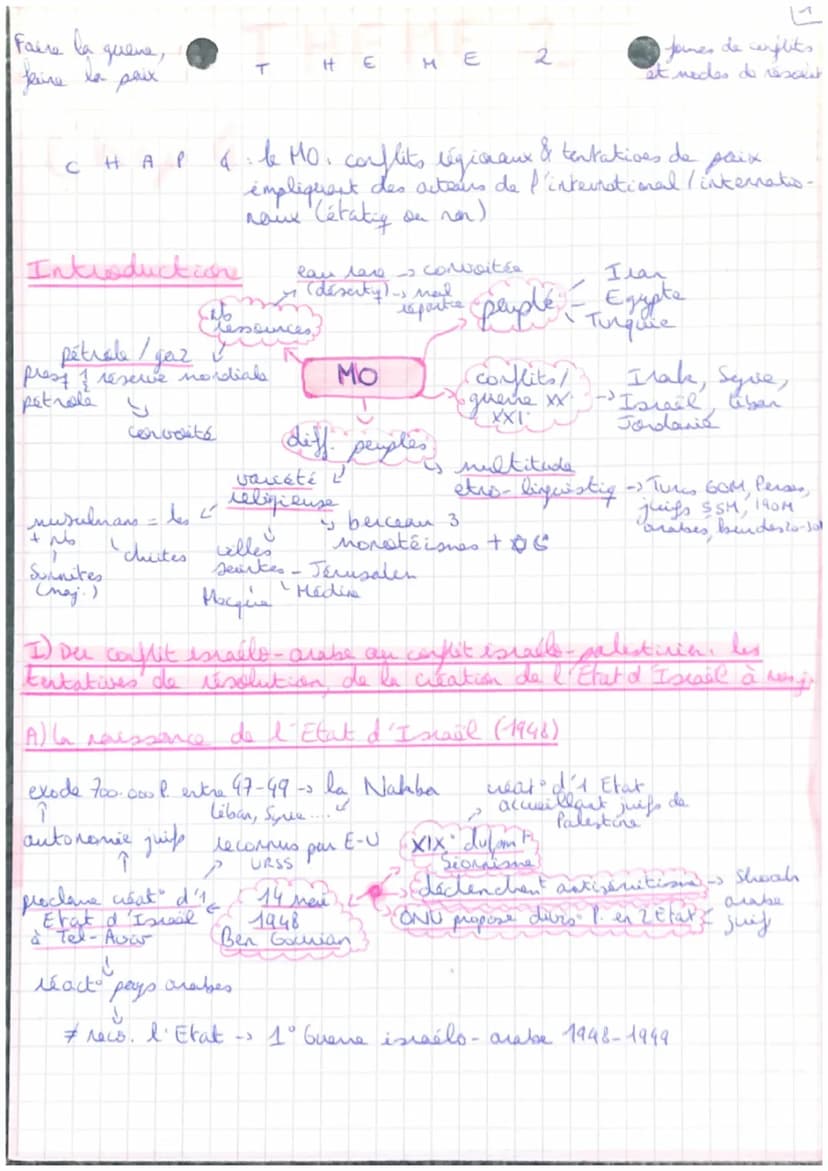 1
Faire la guerre,
faire la paix
T H E M E 2
formes de conflits
et modes de résolut
CHAP 4 : le MO : conflits régionaux & tentatives de paix
impliquant des acteurs de l'international / internatio-
naux (étatiq ou non)
Introduction
eau rare -> convoitée
(déserty) -> mal
répartie
nb
ressources
pétrole / gaz
réserve mondiale
pétrole
convoité
MO
peuplé
Iran
Egypte
Turquie
conflits/
guerre XX°
XXI°
-> Irak, Syrie,
Israël, Liban
Jordanie
diff. peuples
variété
religieuse
musulmans = les
+ nb
Sunnites
(maj.)
chiites
villes
saintes - Jérusalem
Mecque
Médine
berceau 3
monotéismes +
multitude
etno-linguistiq -> Turcs 60M, Perses,
juifs 190M
arabes,
I) Du conflit israélo-arabe au conflit israélo-palestinien : les
tentatives de résolution, de la création de l'Etat d'Israël à nos j.
A) la naissance de l'Etat d'Israël (1948)
exode 700.000 P. entre 47-49 -> la Nakba
Liban, Syrie....
autonomie juifs
reconnus par E-U
URSS
proclame créat° d'1
Etat d'Israël
à Tel-Aviv
14 mai
1948
Ben Gourian
créat° d'1 Etat
accueillant juifs de
Palestine
XIX°
Sionnisme
déclenchent antisémitisme -> Shoah
ONU propose divis° P. en 2 Etat
arabe
juif
réact° pays arabes
≠ reco. l'Etat -> 1° Guerre israélo-arabe 1948-1949